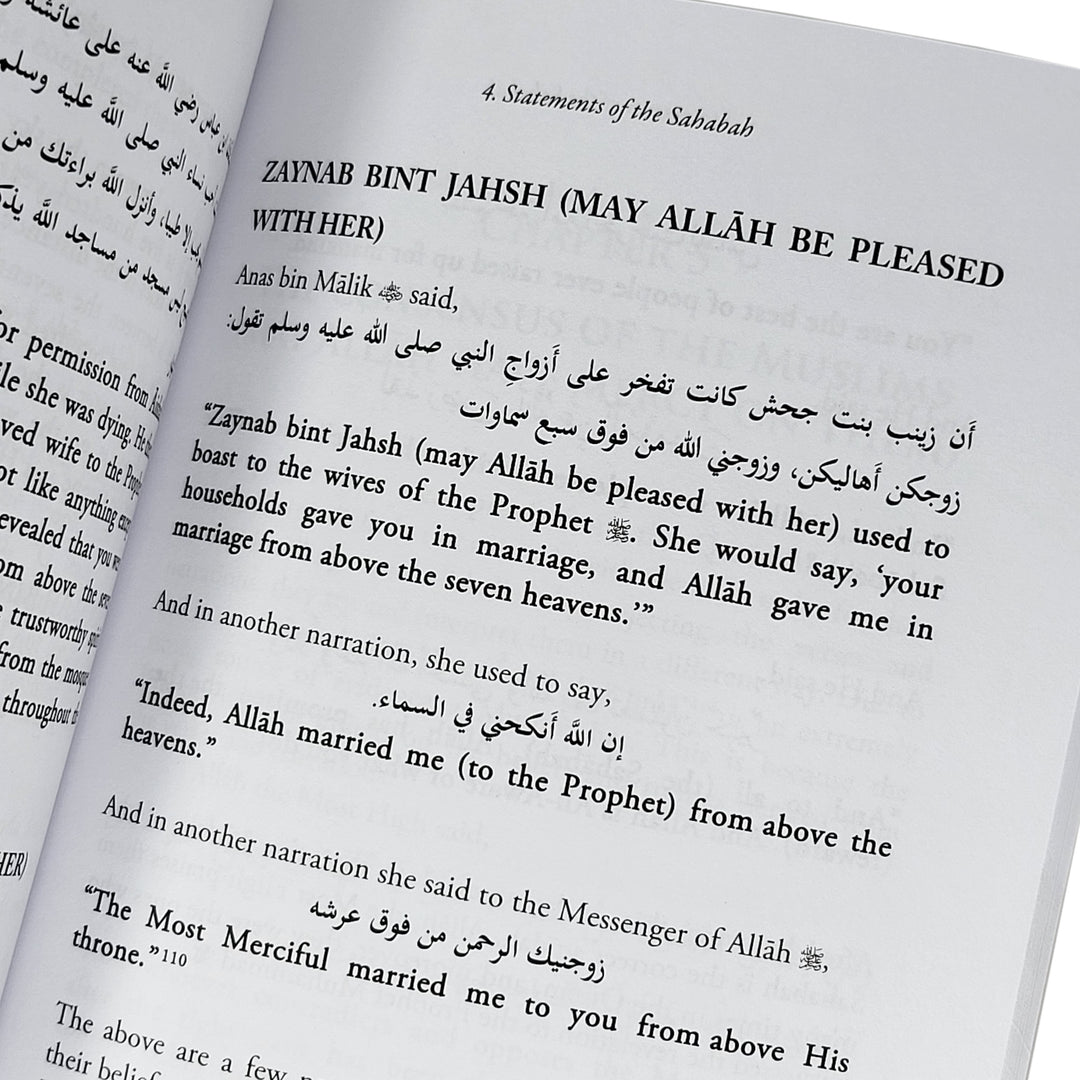 رضي اللَّه عنه على عائشة
صلى اللَّه عليه وسلم
نساء النبي صلى اللَّه عليه
إلا طيبا، وأنزل اللَّه براءتك من
مسجد من مساجد اللَّه
or permission from
le she was dying. He
ved wife to the
ot like anything
evealed that you
om above the
trustworthy
from the
throughout
HER)
4. Statements of the Sahabah
ZAYNAB BINT JAHSH (MAY ALLĀH BE PLEASED
WITH HER)
Anas bin Mālik ﵁ said,
أَن زينب بنت جحش كانت تفخر على أَزواجِ النبي صلى الله عليه وسلم تقول:
زوجكن أَهاليكن، وزوجني الله من فوق سبع سماوات
“Zaynab bint Jahsh (may Allāh be pleased with her) used to
boast to the wives of the Prophet ﷺ. She would say, ‘your
households gave you in marriage, and Allāh gave me in
marriage from above the seven heavens.’”
And in another narration, she used to say,
إن اللَّه أَنكحني في السماء.
“Indeed, Allāh married me (to the Prophet) from above the
heavens.”
And in another narration she said to the Messenger of Allāh ﷺ,
زوجنيك الرحمن من فوق عرشه
“The Most Merciful married me to you from above His
throne.”110
The above are a few
their belief